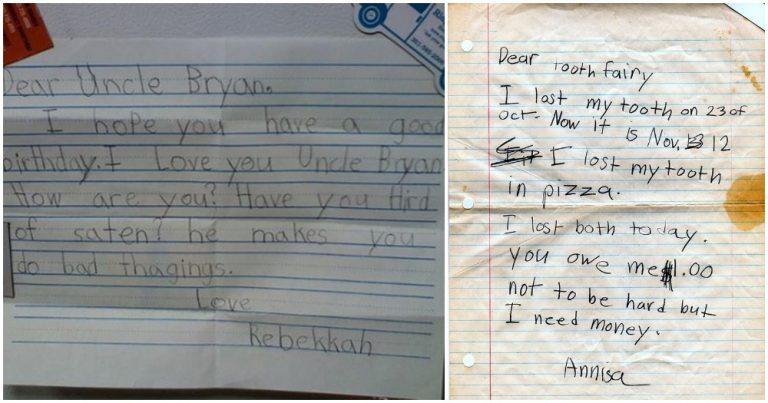 Dear Uncle Bryan.
I hope you have a good
birthday. I Love you Uncle Bryan
How are you? Have you Hird
of saten? he makes you
do bad thagings.
Love
Rebekkah
Dear tooth fairy
I lost my tooth on 23 of
oct. Now it is Nov. 12
I lost my tooth
in pizza.
I lost both today.
you owe me $1.00
not to be hard but
I need money.
Annisa